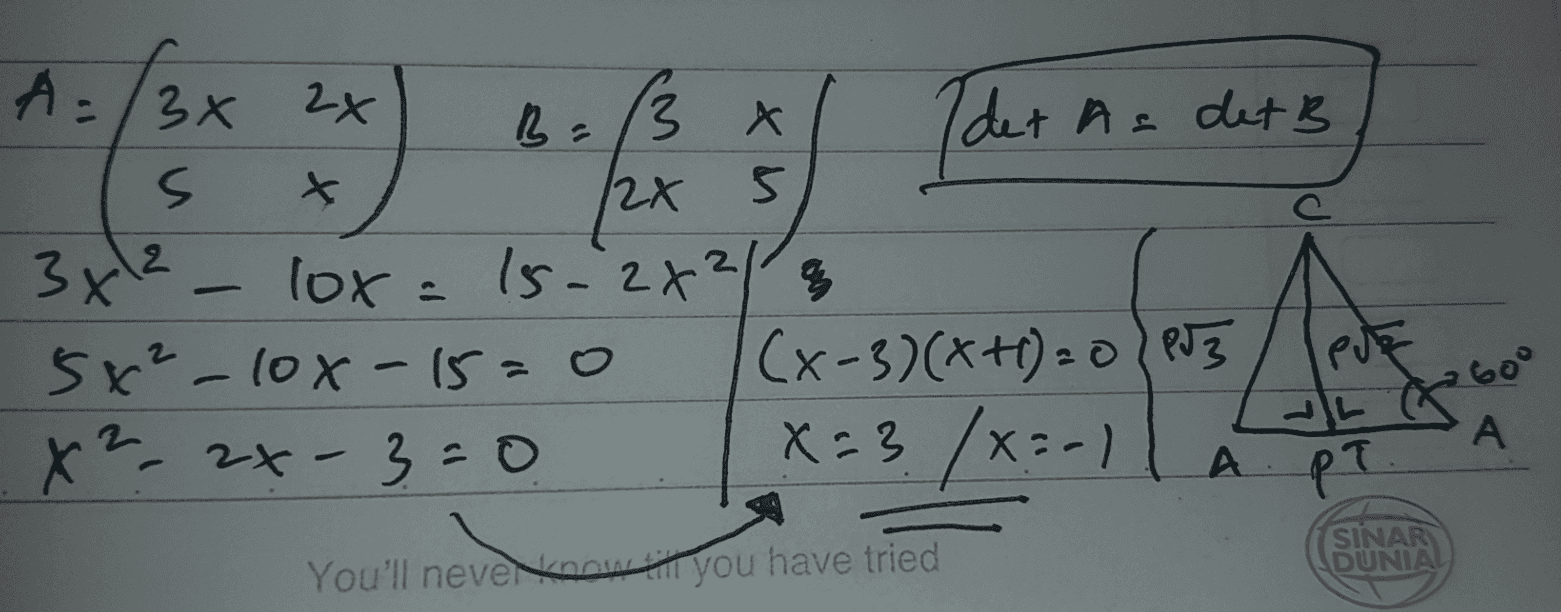 A = (3x 2x
5 x)
B = (3 x
2x 5)
det A = det B
3x² - 10x = 15 - 2x²
5x² - 10x - 15 = 0
x² - 2x - 3 = 0
(x-3)(x+1) = 0
x = 3 / x = -1
C
p√3
60°
A
A
p T
You'll never know till you have tried
SINAR
DUNIA